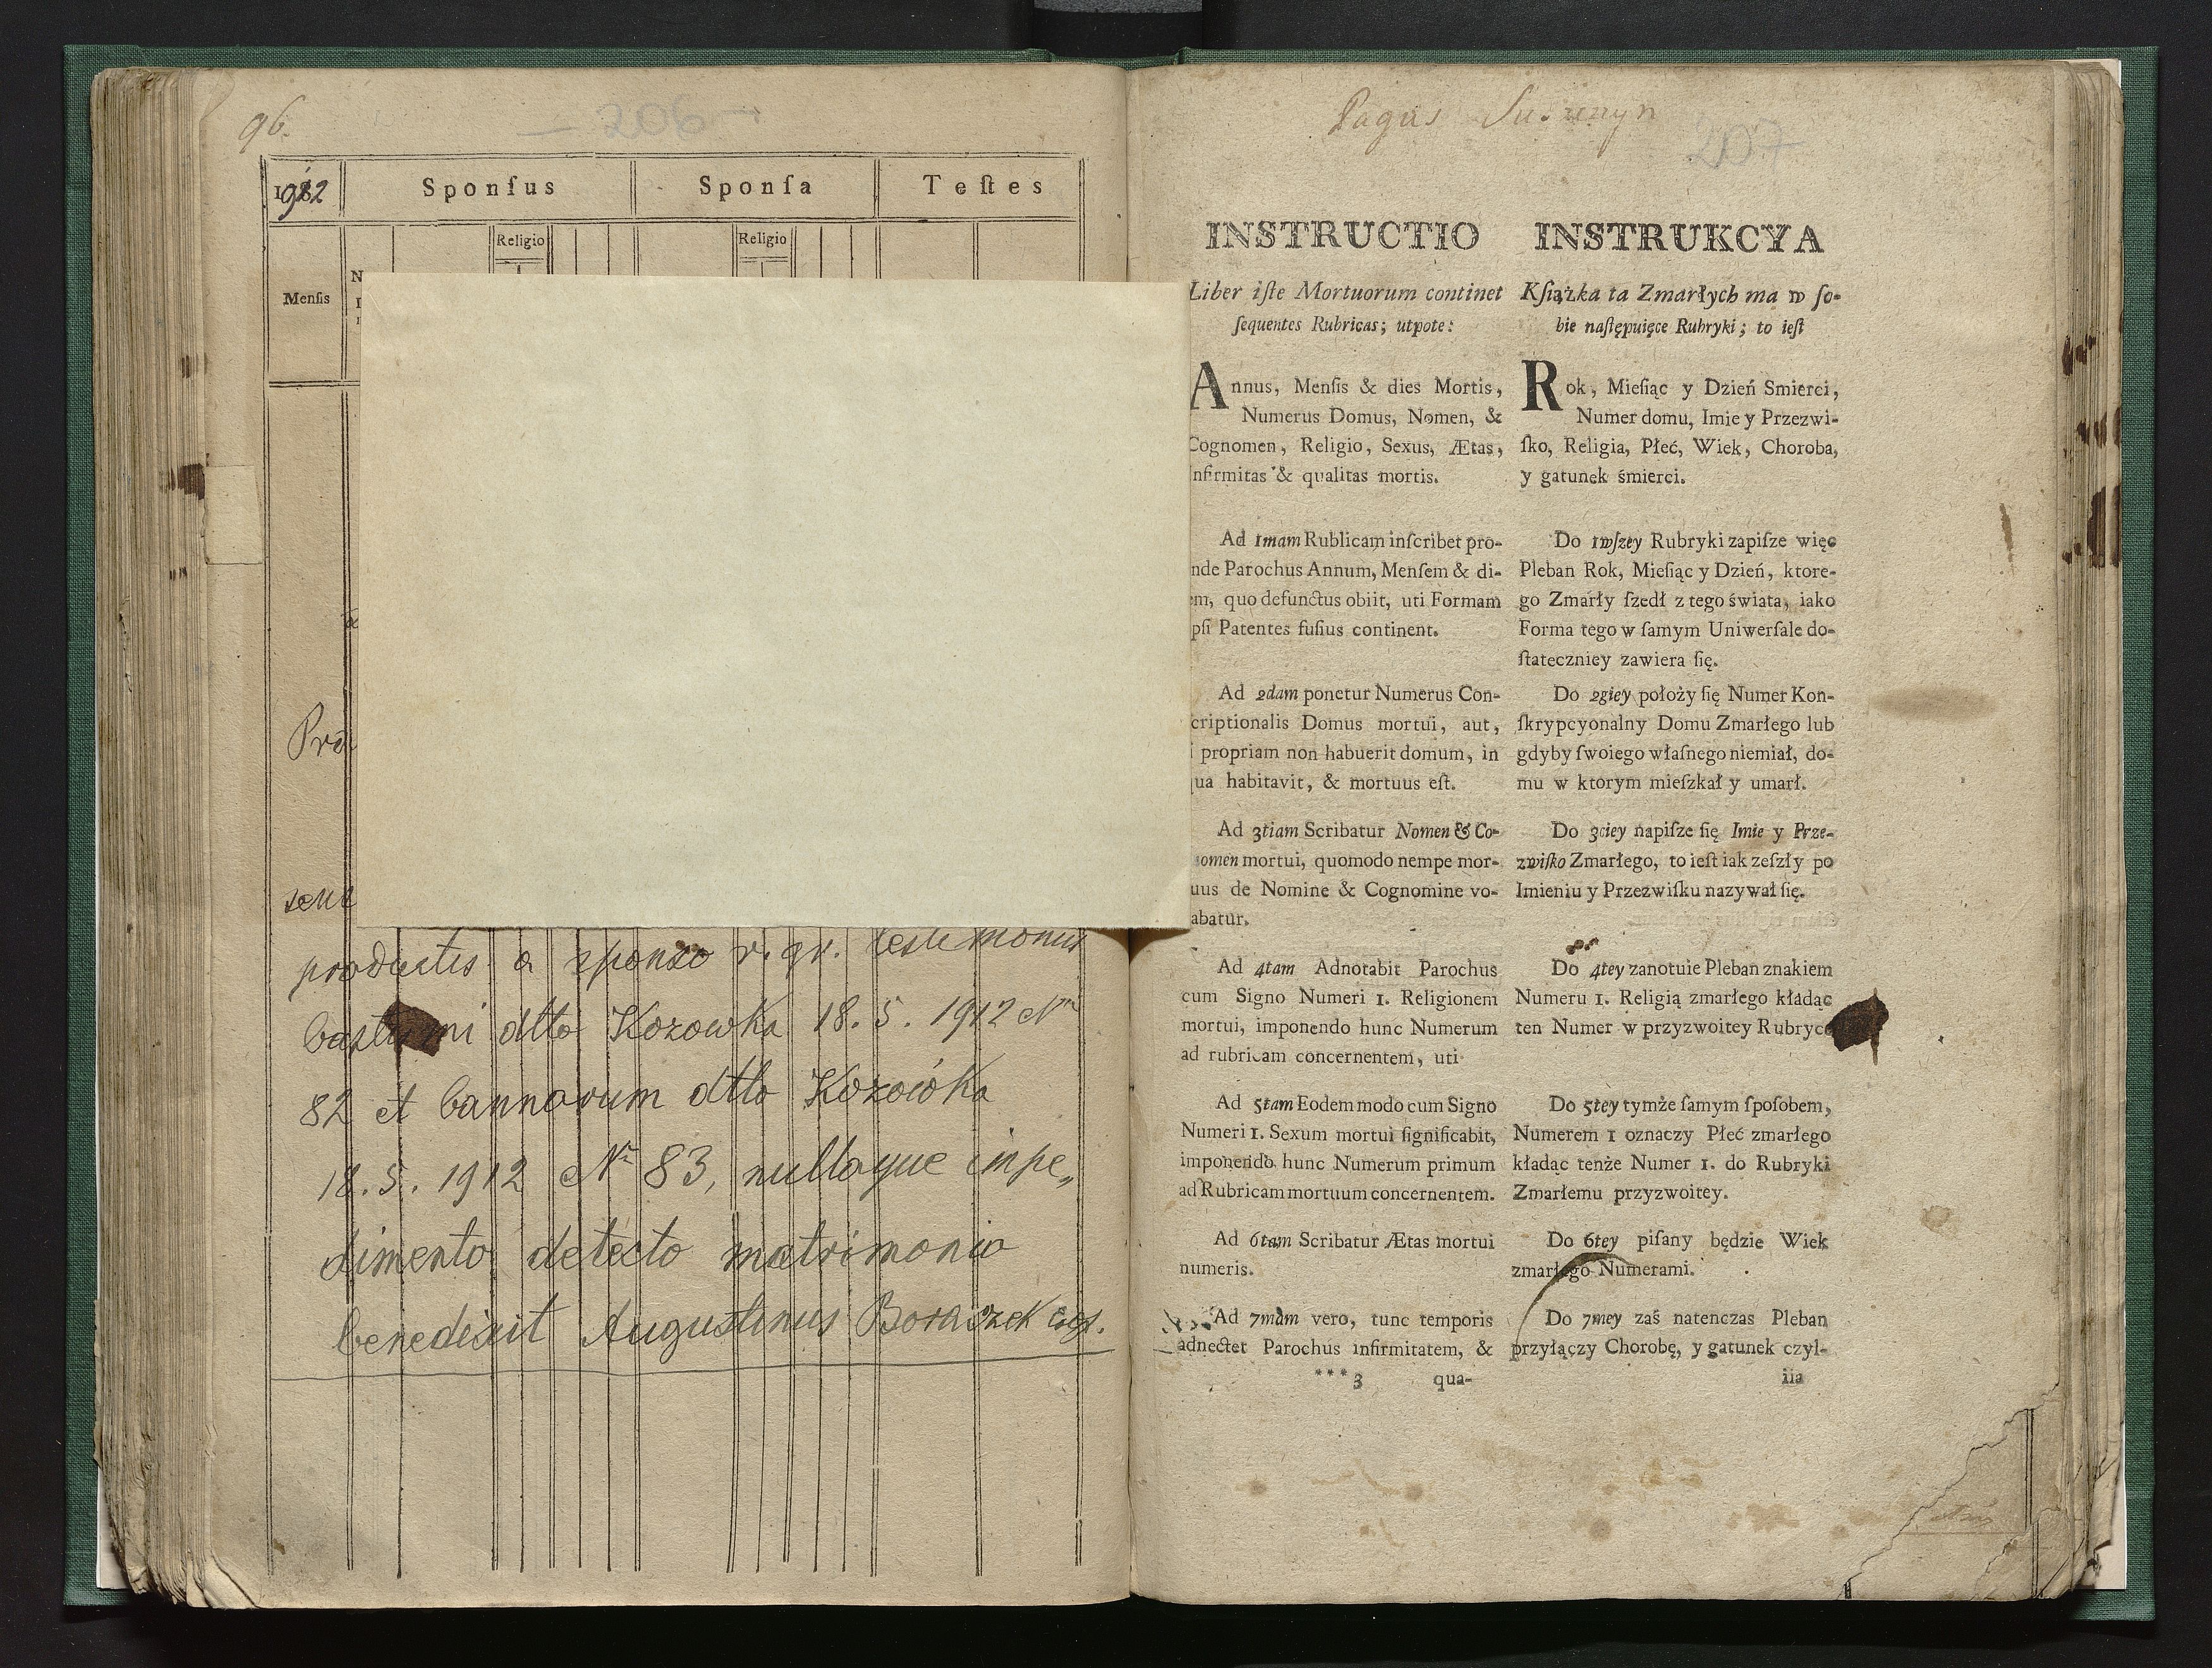 96.
— 206 —
1912
Sponſus
Sponſa
Teſtes
Religio
Religio
Menſis
productis a sponso r. gr. testimoniis
baptismi dtto Kozowka 18. 5. 1912 Nr
82 et bannorum dtto Kozowka
18. 5. 1912 Nr 83, nullaque impe„
dimento detecto matrimonio
benedixit Augustinus Boraczek
Pagus
207
INSTRUCTIO
Liber iſte Mortuorum continet
ſequentes Rubricas; utpote:
Annus, Menſis & dies Mortis,
Numerus Domus, Nomen, &
Cognomen, Religio, Sexus, Ætas,
nfirmitas & qualitas mortis.
Ad 1mam Rublicam inſcribet pro-
nde Parochus Annum, Menſem & di-
em, quo defunctus obiit, uti Formam
pſi Patentes fuſius continent.
Ad 2dam ponetur Numerus Con-
criptionalis Domus mortui, aut,
i propriam non habuerit domum, in
qua habitavit, & mortuus eſt.
Ad 3tiam Scribatur Nomen & Co-
nomen mortui, quomodo nempe mor-
uus de Nomine & Cognomine vo-
abatur.
Ad 4tam Adnotabit Parochus
cum Signo Numeri 1. Religionem
mortui, imponendo hunc Numerum
ad rubricam concernentem, uti
Ad 5tam Eodem modo cum Signo
Numeri 1. Sexum mortui ſignificabit,
imponendo hunc Numerum primum
ad Rubricam mortuum concernentem.
Ad 6tam Scribatur Ætas mortui
numeris.
Ad 7mam vero, tunc temporis
adnectet Parochus infirmitatem, &
***3 qua-
INSTRUKCYA
Kſiążka ta Zmarłych ma w ſo-
bie naſtępuięce Rubryki; to ieſt
Rok, Mieſiąc y Dzień Smierci,
Numer domu, Imie y Przezwi-
ſko, Religia, Płeć, Wiek, Choroba,
y gatunek śmierci.
Do 1wſzey Rubryki zapiſze więc
Pleban Rok, Mieſiąc y Dzień, ktore-
go Zmarły ſzedł z tego świata, iako
Forma tego w ſamym Uniwerſale do-
ſtateczniey zawiera ſię.
Do 2giey położy ſię Numer Kon-
ſkrypcyonalny Domu Zmarłego lub
gdyby ſwoiego właſnego niemiał, do-
mu w ktorym mieſzkał y umarł.
Do 3ciey napiſze ſię Imie y Prze-
zwiſko Zmarłego, to ieſt iak zeſzły po
Imieniu y Przezwiſku nazywał ſię.
Do 4tey zanotuie Pleban znakiem
Numeru 1. Religią zmarłego kładąc
ten Numer w przyzwoitey Rubryce
Do 5tey tymże ſamym ſpoſobem,
Numerem 1 oznaczy Płeć zmarłego
kładąc tenże Numer 1. do Rubryki
Zmarłemu przyzwoitey.
Do 6tey piſany będzie Wiek
zmarłego Numerami.
Do 7mey zaś natenczas Pleban
przyłączy Chorobę, y gatunek czyl-
iia